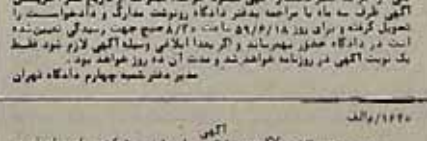 آگهی ظرف سه ماه با مراجعه بدفتر دادگاه رونوشت مدارک و دادخواست را
تحویل گرفته و برای روز ۵۹/۶/۱۸ ساعت ۸/۲۰ صبح جهت رسیدگی تعیین شده
است در دادگاه حضور بهمرساند و اگر بعدا ابلاغی وسیله آگهی لازم شود فقط
یک نوبت آگهی در روزنامه خواهد شد و مدت آن ده روز خواهد بود .
مدیر دفتر شعبه چهارم دادگاه تهران
۱۶۲۰/والف
آگهی